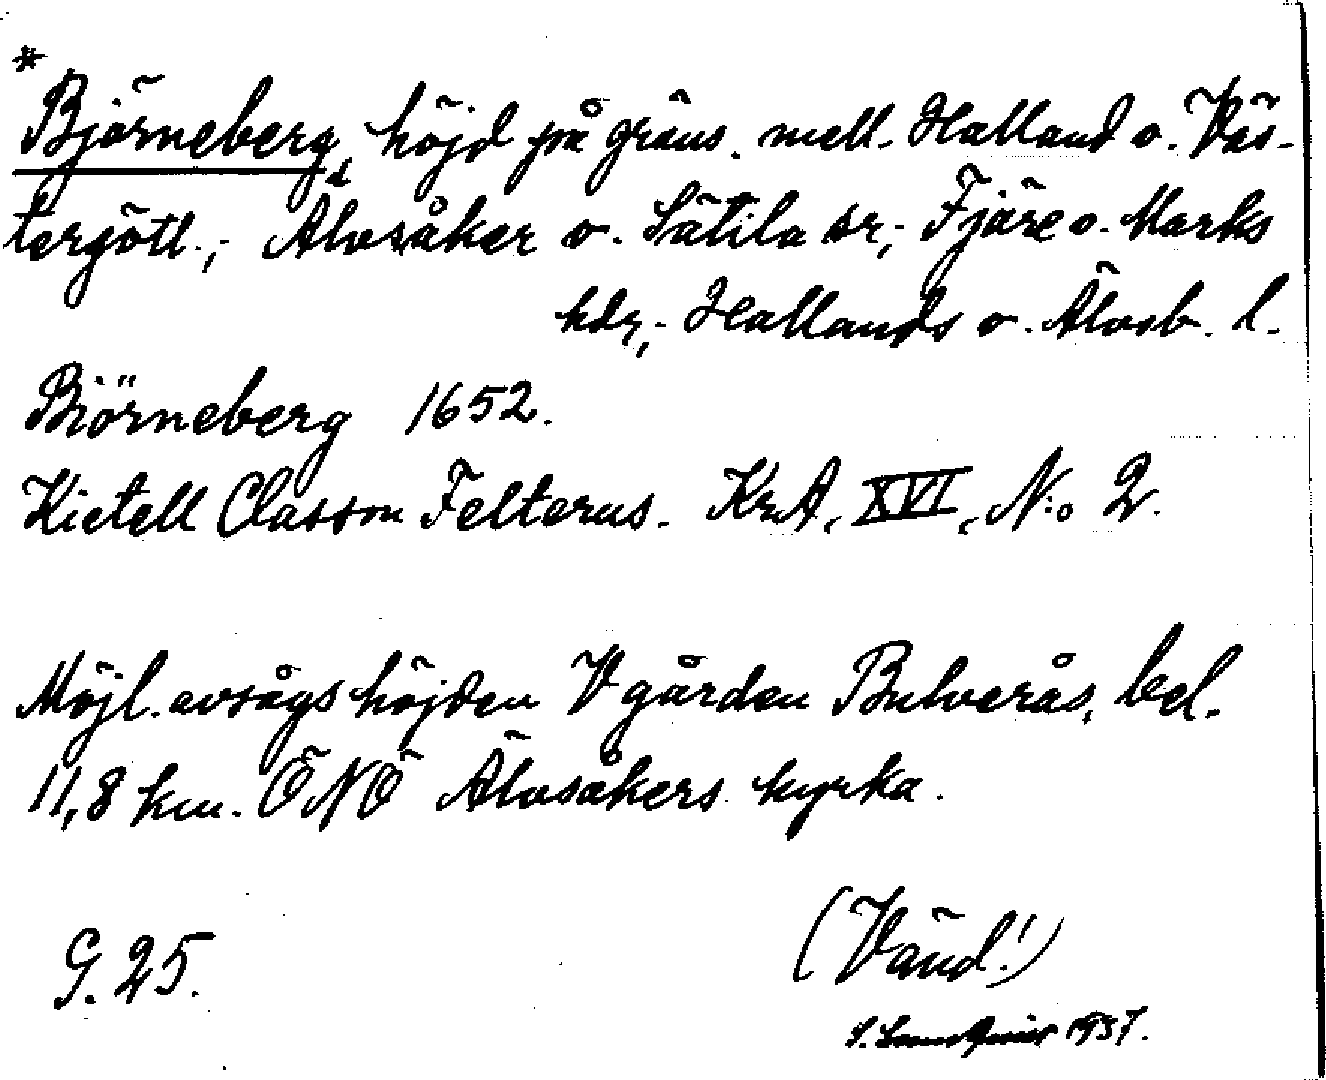 *
Björneberg, höjd på gräns. mell. Halland o. Väs-
tergötl.; Älvsåker o. Sätila sr; Fjäre o. Marks
hdr; Hallands o. Älvsb. l.
Biörneberg 1652.
Kietell Classon Felterus. KrA, XVI, N:o 2.
Möjl. avságs höjden V gården Bulverås, bel.
11,8 km. ÖNÖ Älvsåkers kyrka.
G. 25.
(Vänd!)
1937.